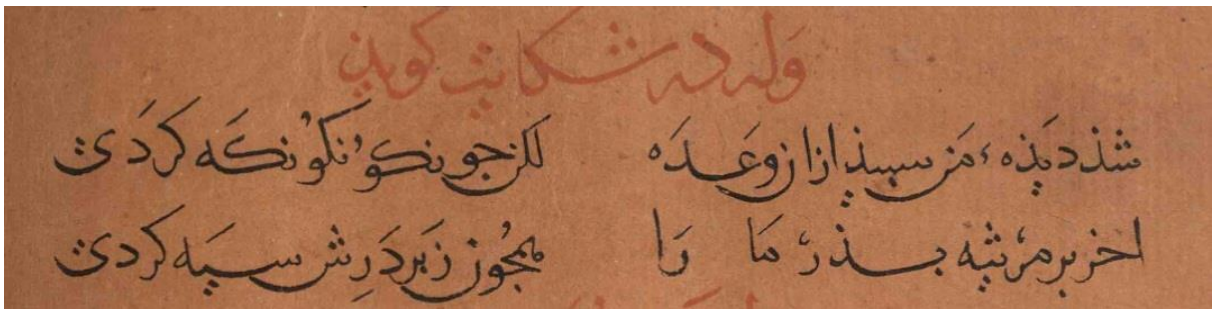 وله در شكایت كوید
شذ دیذهٔ من سبیذ ازان وعده لکن جو نکو نکو نکه کردی
اخر بر مرثیه بذر ما را همجون زبر درش سیه کردی